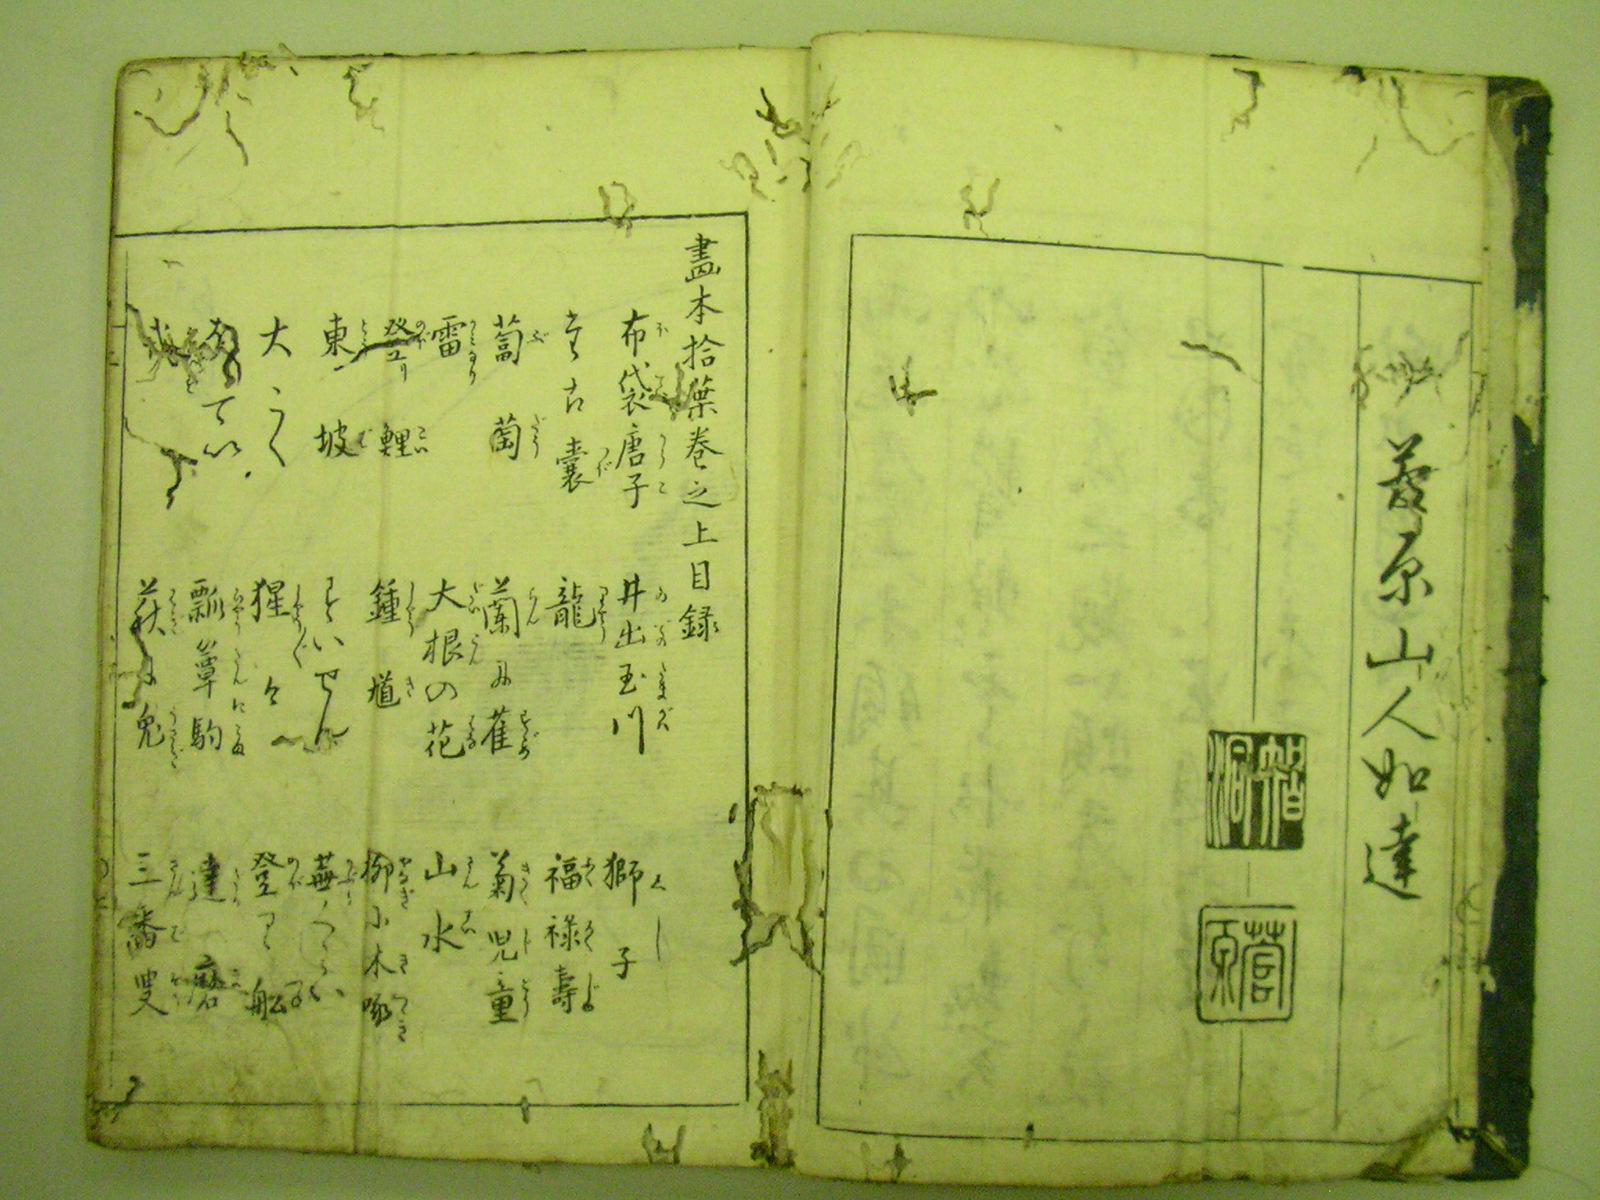 菱原山人如達
智洞
菅原
畫本拾葉巻之上目録
布袋唐子
井出玉川
獅子
龍
福禄壽
葡萄
蘭に雀
菊児童
雷
大根の花
山水
登り鯉
鍾馗
柳小木啄
東坡
すいせん
大こく
猩々
登り舩
瓢箪駒
達磨
萩に兎
三番叟